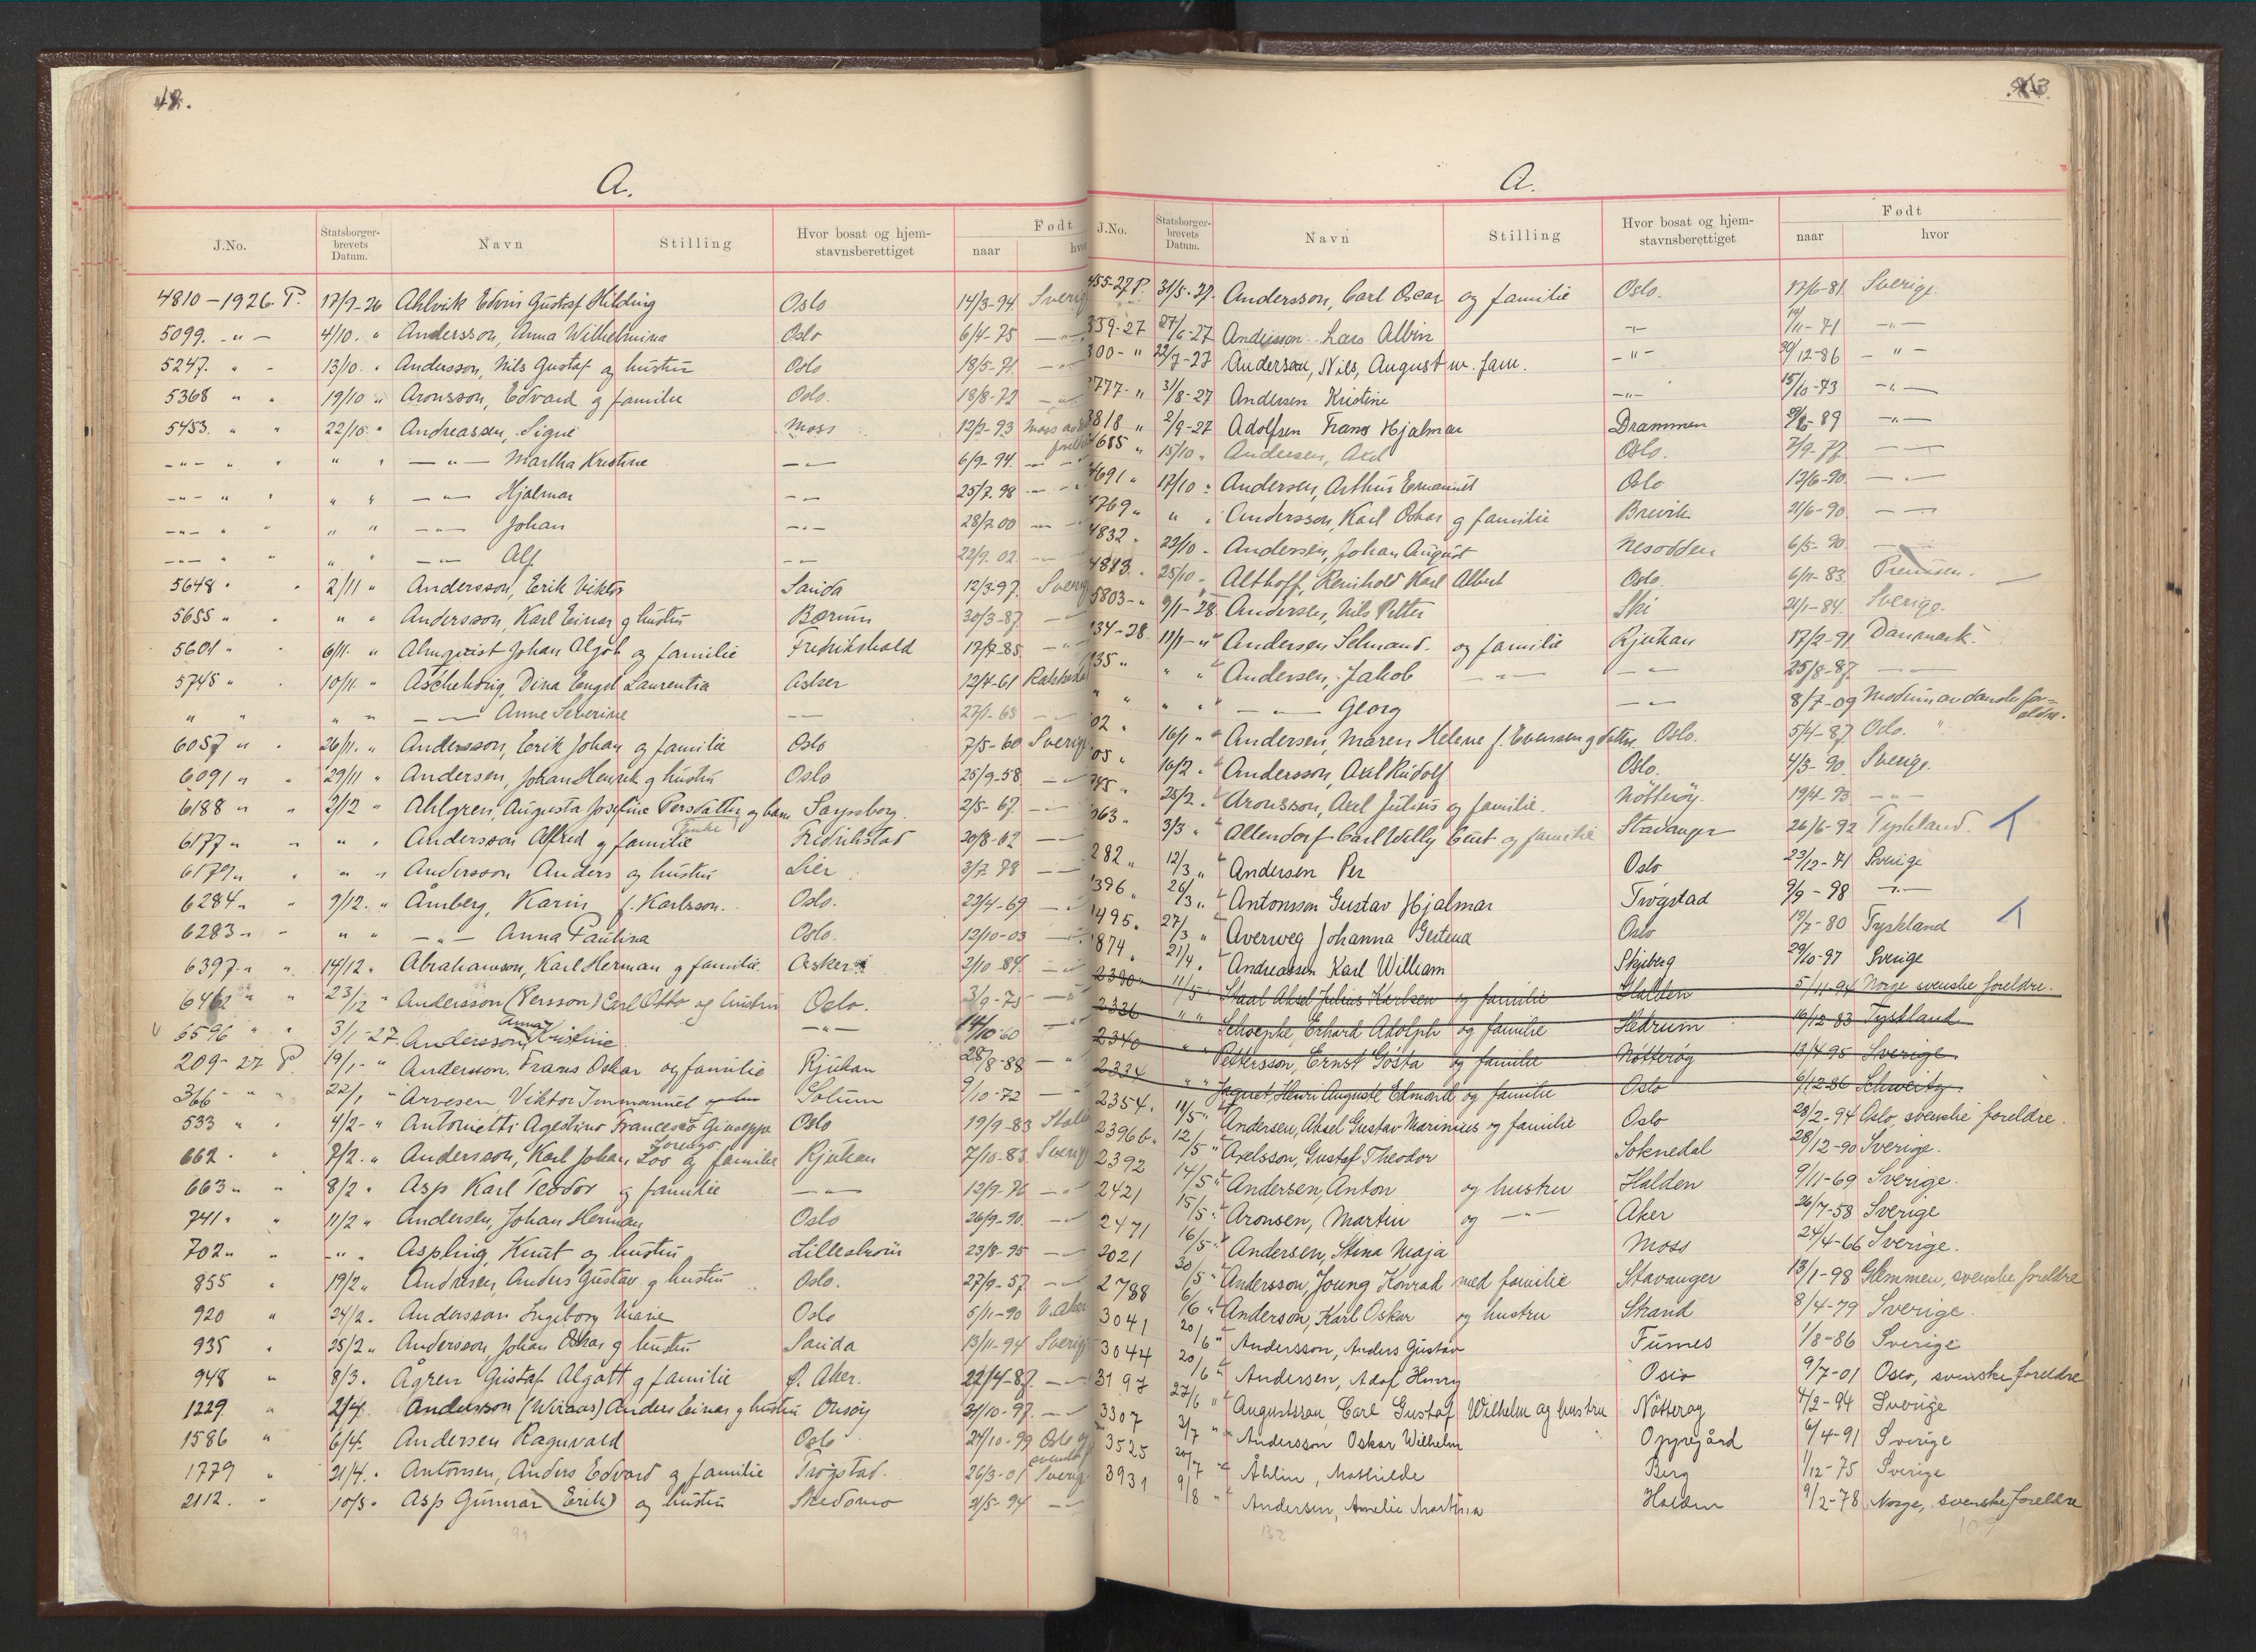 A.
J.No. Statsborger-brevets Datum. Navn Stilling Hvor bosat og hjem-stavnsberettiget Født naar
4810-1926. P. 17/9-26 Ahlvik Edvin Gustaf Hilding Oslo 14/3-94
5099. -"- 4/10. " Andersson, Anna Wilhelmina Oslo 6/4-75
5247. " - 13/10. " Andersson, Nils Gustaf og hustru Oslo 18/5-71
5368 " " 19/10 " Aronsson, Edvard g familie Oslo. 18/8-72
5453. " " 22/10. " Andreassen, Signe Moss 12/2-93
-"- " " " " -"- Martha Kristine -"- 6/9-94.
-"- " " " " -"- Hjalmar -"- 25/7.98
-"- " " " " -"- Johan -"- 28/7.00
-"- " " " " -"- Alf -"- 22/9.02
5648 " " 2/11 " Andersson, Erik Viktor Sauda 12/3-97.
5655 " " " " Andersson, Karl Einar g hustru Bærum 30/3-87.
5601 " " 6/11. " Almqvist Johan Algot og familie Fredrikshald 17/7-85
5745 " " 10/11. " Aschehoug, Dina Engel Laurentia Asker 12/4-61
" " " " -"- Anne Severine -"- 27/1-65
6057 " " 26/11. " Andersson, Erik Johan og familie Oslo 7/5-60
6091 " " 29/11 " Andersen, Johan Henrik g hustru Oslo 25/9-58
6188 " " 2/12 " Ahlgren, Augusta Josefine Persdatter og barn Sarpsborg. 2/5-67.
6177 " " " " Andersson Alfred g familie Fredrikstad 20/8-62
6179 " " " " Andersson Anders og hustru Lier 3/7 78
6284 " " 9/12. " Åmberg, Karin f. Karlsson. Oslo. 23/4-69
6283 " " " " -"- Anna Paulina Oslo. 12/10-03
6397 " " 14/12 " Abrahamson, Karl Herman g familie. Asker 2/10-84.
6462 " " 23/12 " Andersson (Persson) Carl Otto og hustru Oslo. 3/9-75
6596 " " 3/1-27. Andersson, Anna Kristine -"- 14/10 60
209-27 P. 19/1-" Andersson. Frans Oskar og familie Rjukan 28/8-88
366 " " 22/1 " Arvesen, Viktor Immanuel Solum 9/10-72
533 " " 4/2-" Antonietti Agostino Francesco Giuseppe Lorenzo Oslo 19/9-83
662. " 7/2. " Andersson, Karl Johan og familie Rjukan 7/10-83.
663 " " 8/2 " Asp Karl Teodor g familie -"- 12/9-76
741. " 11/2 " Andersen, Johan Herman Oslo 26/9-90.
702 " " -"- Aspling, Knut og hustru Lillestrøm 23/8-95
855 " 19/2 " Andersen, Anders Gustav g hustru Oslo. 27/9-57.
920 " 24/2. Andersson Ingeborg Marie Oslo 5/11-90 V. Aker
935 " 25/2 " Andersson, Johan Oskar g hustru Sauda 13/11-94
948 " 8/3. Ågren Gustaf Algott g familie Ø. Aker. 22/4-87.
1229. " 2/4. Andersson (Wiraas) Anders Einar g hustru Onsøy 31/10-97.
1586 " 6/4. Andersen Ragnvald Oslo 24/10-99
1779 " 21/4. " Antonsen, Anders Edvard g familie Trøgstad. 26/3-01
2112. " 10/5. Asp Gunnar (Erik) og hustru Skedsmo 21/5-94
A.
J.No. Statsborger-brevets Datum. Navn Stilling Hvor bosat og hjem-stavnsberettiget Født naar hvor
455-27 P. 31/5-27. Andersson, Carl Oscar og familie Oslo. 17/6-81 Sverige.
359-27 27/6-27 Andersson Lars Albin -"- 14/11-71 -"-
300-" 22/7-27 Anderson, Nils, August m. fam. -"- 30/12-86 -"-
2777-" 31/8-27 Andersen Kristine -"- 15/10-73 -"-
3818 " 2/9-27 Adolfsen Frans Hjalmar Drammen 2/6-89 -"-
4685 " 15/10 " Andersen, Axel Oslo. 7/9-77 -"-
4691 " 17/10 " Andersen, Arthur Emanuel Oslo 12/6-90. -"-
4769 " " " Andersson, Karl Oskar g familie Brevik 21/6-90. -"-
4832 " 22/10 - Andersen, Johan August Nesodden 6/5-90. -"-
4873. " 25/10 - Althoff, Reinhold Karl Albert Oslo. 6/11-83. Preussen.
5803-" 9/1-28 Andersen, Nils Petter Ski 21/1-84. Sverige.
134-28. 11/1-" Andersen Selmand. og familie Rjukan 17/2-91 Danmark.
135 " " " Andersen, Jakob -"- -"- 25/8-87. -"-
" " " " -"- Georg -"- 8/7-09 Modum av danske foreldre.
02 " 16/1 " Andersen, Maren Helene f. Evensen g datter Oslo. 5/4-87 Oslo.
05 " 10/2. " Andersson, Axel Rudolf Oslo. 4/3-90. Sverige.
945 " 25/2. " Aronsson, Axel Julius og familie. Nøtterøy. 19/4-93 -"-
063 " 3/3 " Allendorf Carl Willy Curt og familie Stavanger 26/6-92 Tyskland.
282 " 12/3 " Andersen Per Oslo 23/12-71 Sverige
1396 " 26/3 " Antonsson Gustav Hjalmar Trøgstad 9/9-98 -"-
1495. 27/3 " Averweg Johanna Gestena Oslo 19/2-80 Tyskland
1874 " 21/4 " Andreassen Karl William Skjeberg 29/10-97 Sverige
2300 " 11/5 " Staal Aksel Julius Karlsen og familie Halden 5/11-94 Norge svenske foreldre.
2336 " " Schoepke, Erhard Adolph og familie Hedrum 16/12-83 Tyskland
2340 " " Pettersson, Ernst Gøsta og familie Nøtterøy 13/4-95 Sverige.
2334 " " Jaquet, Henri Auguste Edmond og familie Oslo 6/12-86 Schweitz.
2354. 11/5 " Andersen, Aksel Gustav Marinius og familie Oslo 28/2-94 Oslo, svenske foreldre.
2396b. 12/5 " Axelsson, Gustaf Theodor Soknedal 28/12-90 Sverige.
2392 14/5 " Andersen, Anton og hustru Halden 9/11-69 Sverige.
2421 15/5 " Aronsen, Martin og -"- Aker 26/7-58 Sverige
2471 16/5 " Andersen, Stina Maja Moss 24/4-66 Sverige.
2021 20/5 " Andersson, Joung Konrad med familie Stavanger 13/1-98 Glemmen, svenske foreldre
2788 6/6 " Anderson, Karl Oskar og hustru Strand 8/4-79 Sverige.
3041 20/6 " Andersson, Anders Gustav Furnes 1/8-86 Sverige
3044 20/6 " Andersen, Adof Henry Oslo 9/7-01 Oslo, svenske foreldre
3197 27/6 " Augustsson, Carl Gustaf Wilhelm og hustru Nøtterøy 4/2-94 Sverige
3307 3/7 " Andersson Oskar Wilhelm Oppegård 6/4-91 Sverige
3525 20/7 " Åhlin, Mathilde Berg 1/12-75 Sverige
3931 9/8 " Andersen, Amalie Martina Halden 9/2-78 Norge, svenske foreldre